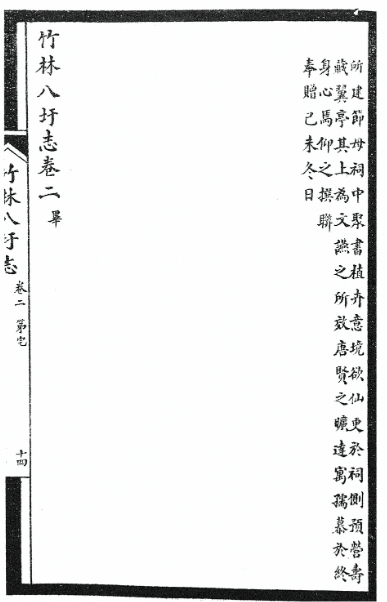 所建節母祠中聚書植卉意境欲仙更於祠側預營壽
藏翼亭其上為文讌之所效唐賢之曠達寓孺慕於終
身心焉仰之撰聯
奉贈己未冬日
竹林八圩志卷二 畢
竹林八圩志 卷二 第宅 十四